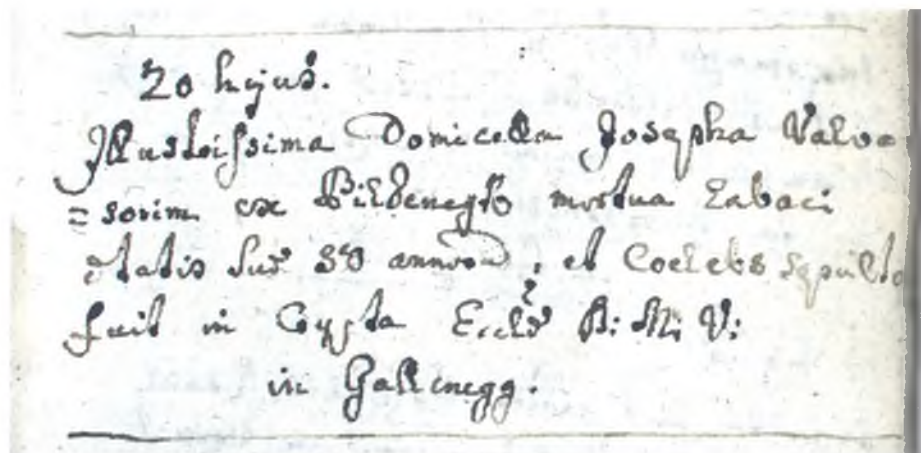 20 hujus.
Illustrissima Domicella Josepha Valva
=sorim ex mortua Labaci
Ætatis suæ annorũ, et Coelebs sepulta
fuit in Crypta Eccl̃æ B: M: V:
in Gallenegg.